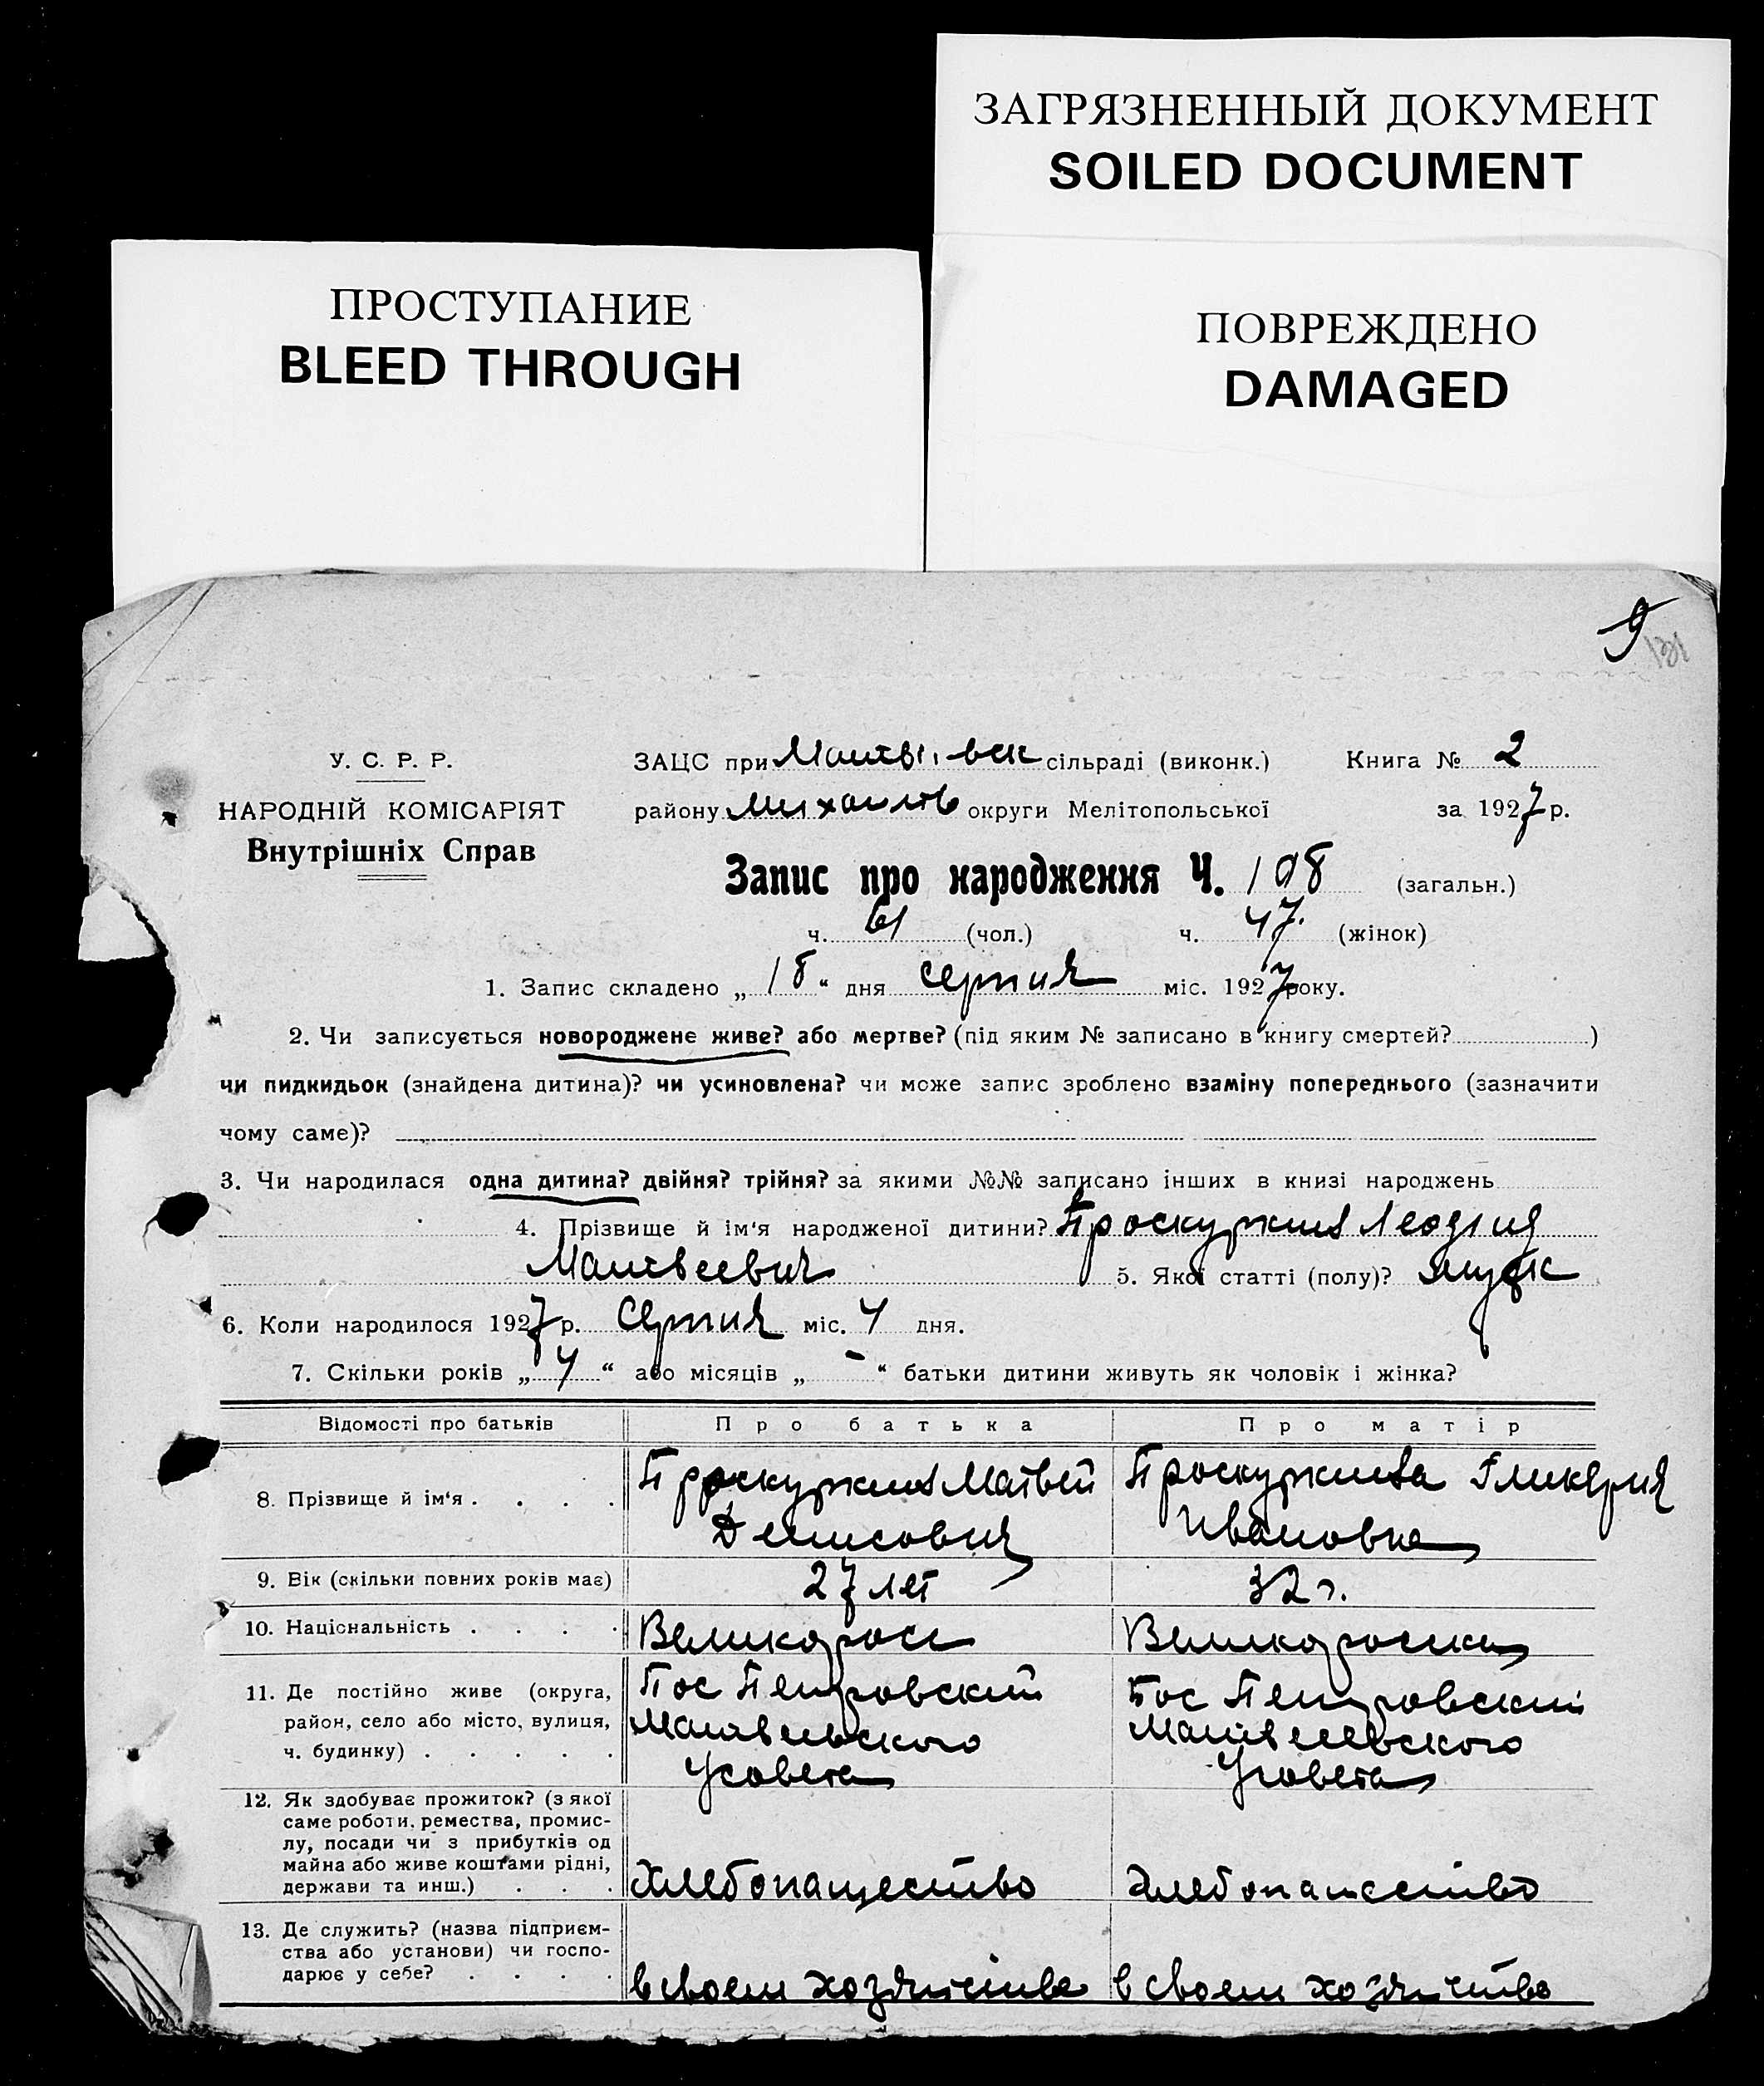 ЗАГРЯЗНЕННЫЙ ДОКУМЕНТ
SOILED DOCUMENT
ПРОСТУПАНИЕ
BLEED THROUGH
ПОВРЕЖДЕНО
DAMAGED
9
131
У. С. Р. Р.
НАРОДНІЙ КОМІСАРІЯТ
Внутрішніх Справ
ЗАЦС при Матвіивск сільраді (виконк.) Книга № 2
району Михайлів округи Мелітопольської за 1927 р.
Запис про народження Ч. 108 (загальн.)
ч. 61 (чол.) ч. 47. (жінок)
1. Запис складено „ 18 “ дня серпня міс. 1927 року.
2. Чи записується новороджене живе? або мертве? (під яким № записано в книгу смертей? )
чи пидкидьок (знайдена дитина)? чи усиновлена? чи може запис зроблено взаміну попереднього (зазначити
чому саме)?
3. Чи народилася одна дитина? двійня? трійня? за якими №№ записано інших в книзі народжень
4. Прізвище й ім‘я народженої дитини? Проскурнин Леонид
Матвеевич 5. Якої статті (полу)? муж
6. Коли народилося 1927 р. серпня міс. 4 дня.
7. Скільки років „ 4 “ або місяців „ - “ батьки дитини живуть як чоловік і жінка?
Відомості про батьків Про батька Про матір
8. Прізвище й ім‘я . . . . Проскурнин Матвей Проскурнина Гликерия
Денисович Ивановна
9. Вік (скільки повних років має) 27 лет 32 г.
10. Національність . . . . Великоросс Великоросска
11. Де постійно живе (округа, Пос Петровский Пос Петровский
район, село або місто, вулиця, Матвеевского Матвеевского
ч. будинку) . . . . . Усовета
12. Як здобуває прожиток? (з якої
саме роботи, ремества, промис-
лу, посади чи з прибутків од
майна або живе коштами рідні,
держави та инш.) . . . Хлебопащество Хлебопашество
13. Де служить? (назва підприєм-
ства або установи) чи госпо-
дарює у себе? . . . . в своем хозяйстве в своем хозяйстве